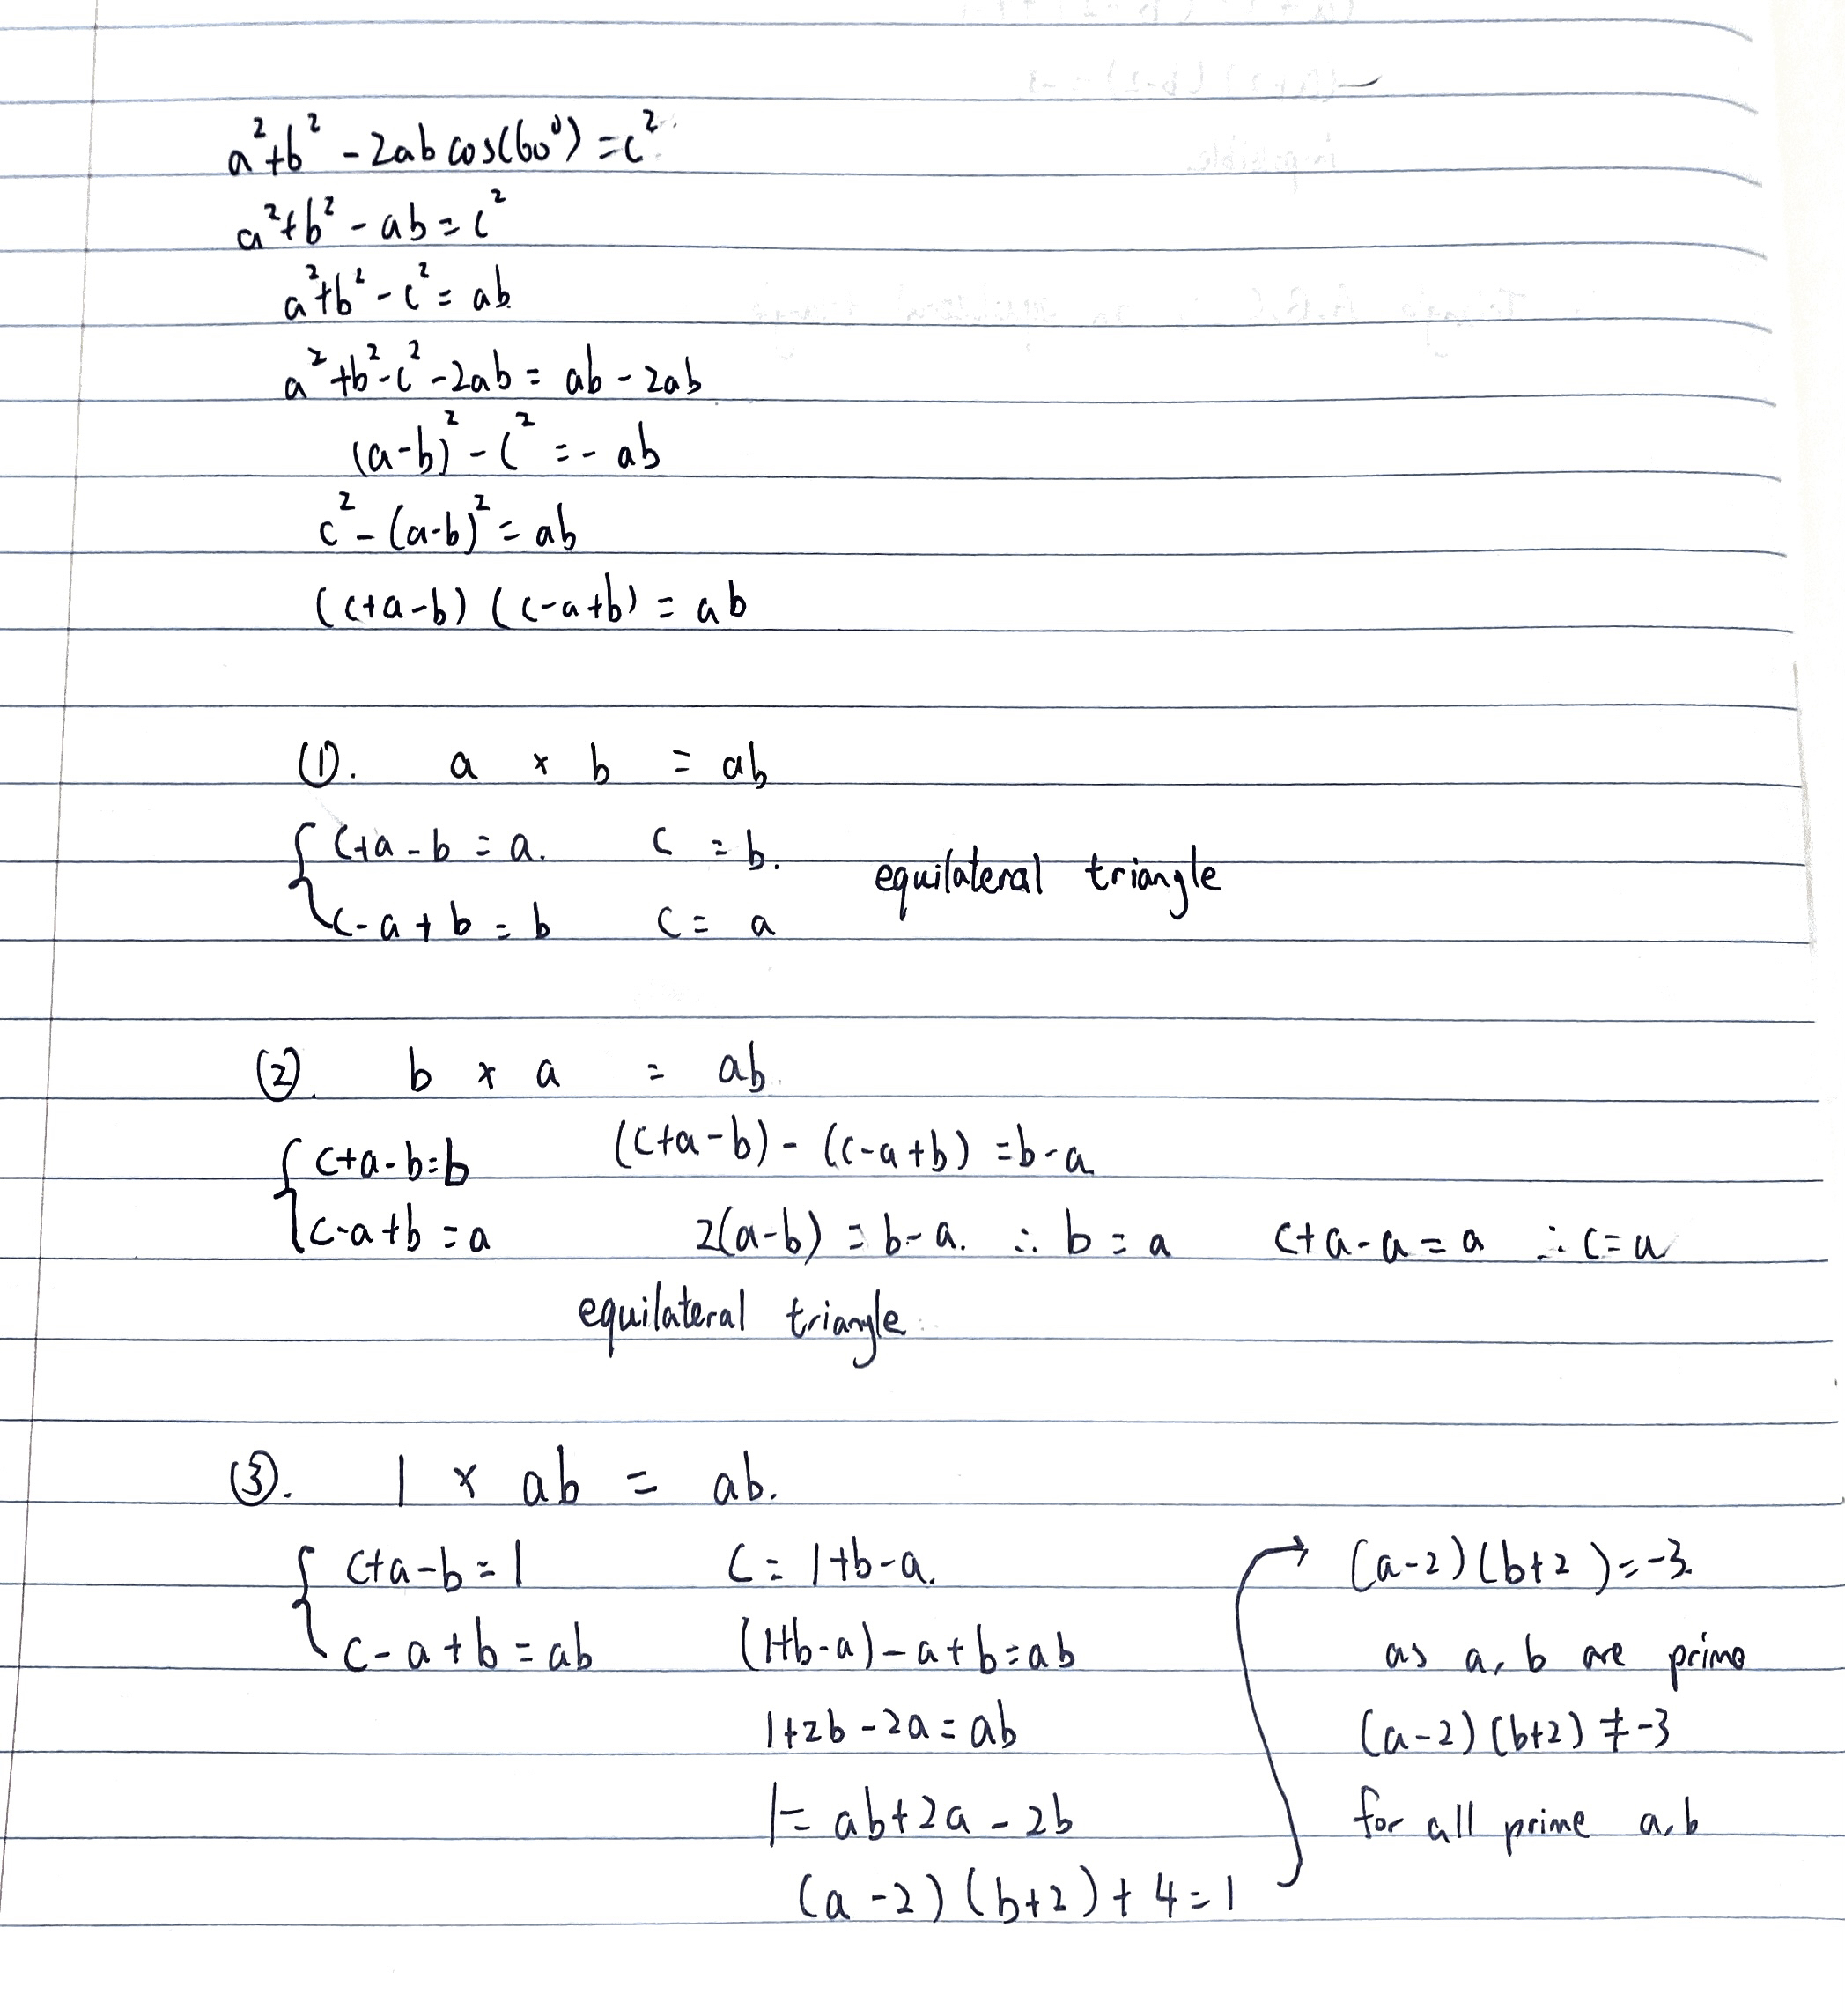 a²+b² - 2ab cos(60°) = c²
a²+b² - ab = c²
a²+b² - c² = ab
a²+b²-c² -2ab = ab - 2ab
(a-b)² - c² = - ab
c² - (a-b)² = ab
(c+a-b) (c-a+b) = ab
①. a × b = ab
c+a-b = a. c = b.
equilateral triangle
c-a+b = b c = a
②. b × a = ab.
c+a-b=b (c+a-b) - (c-a+b) = b-a
c-a+b = a 2(a-b) = b-a. ∴ b = a c+a-a = a ∴ c=a
equilateral triangle.
③. 1 × ab = ab.
c+a-b=1 c = 1+b-a.
c-a+b = ab (1+b-a)-a+b=ab
1+2b-2a=ab
1= ab+2a-2b
(a-2)(b+2)+4=1
→ (a-2)(b+2)=-3.
as a, b are prime
(a-2)(b+2) ≠ -3
for all prime a,b